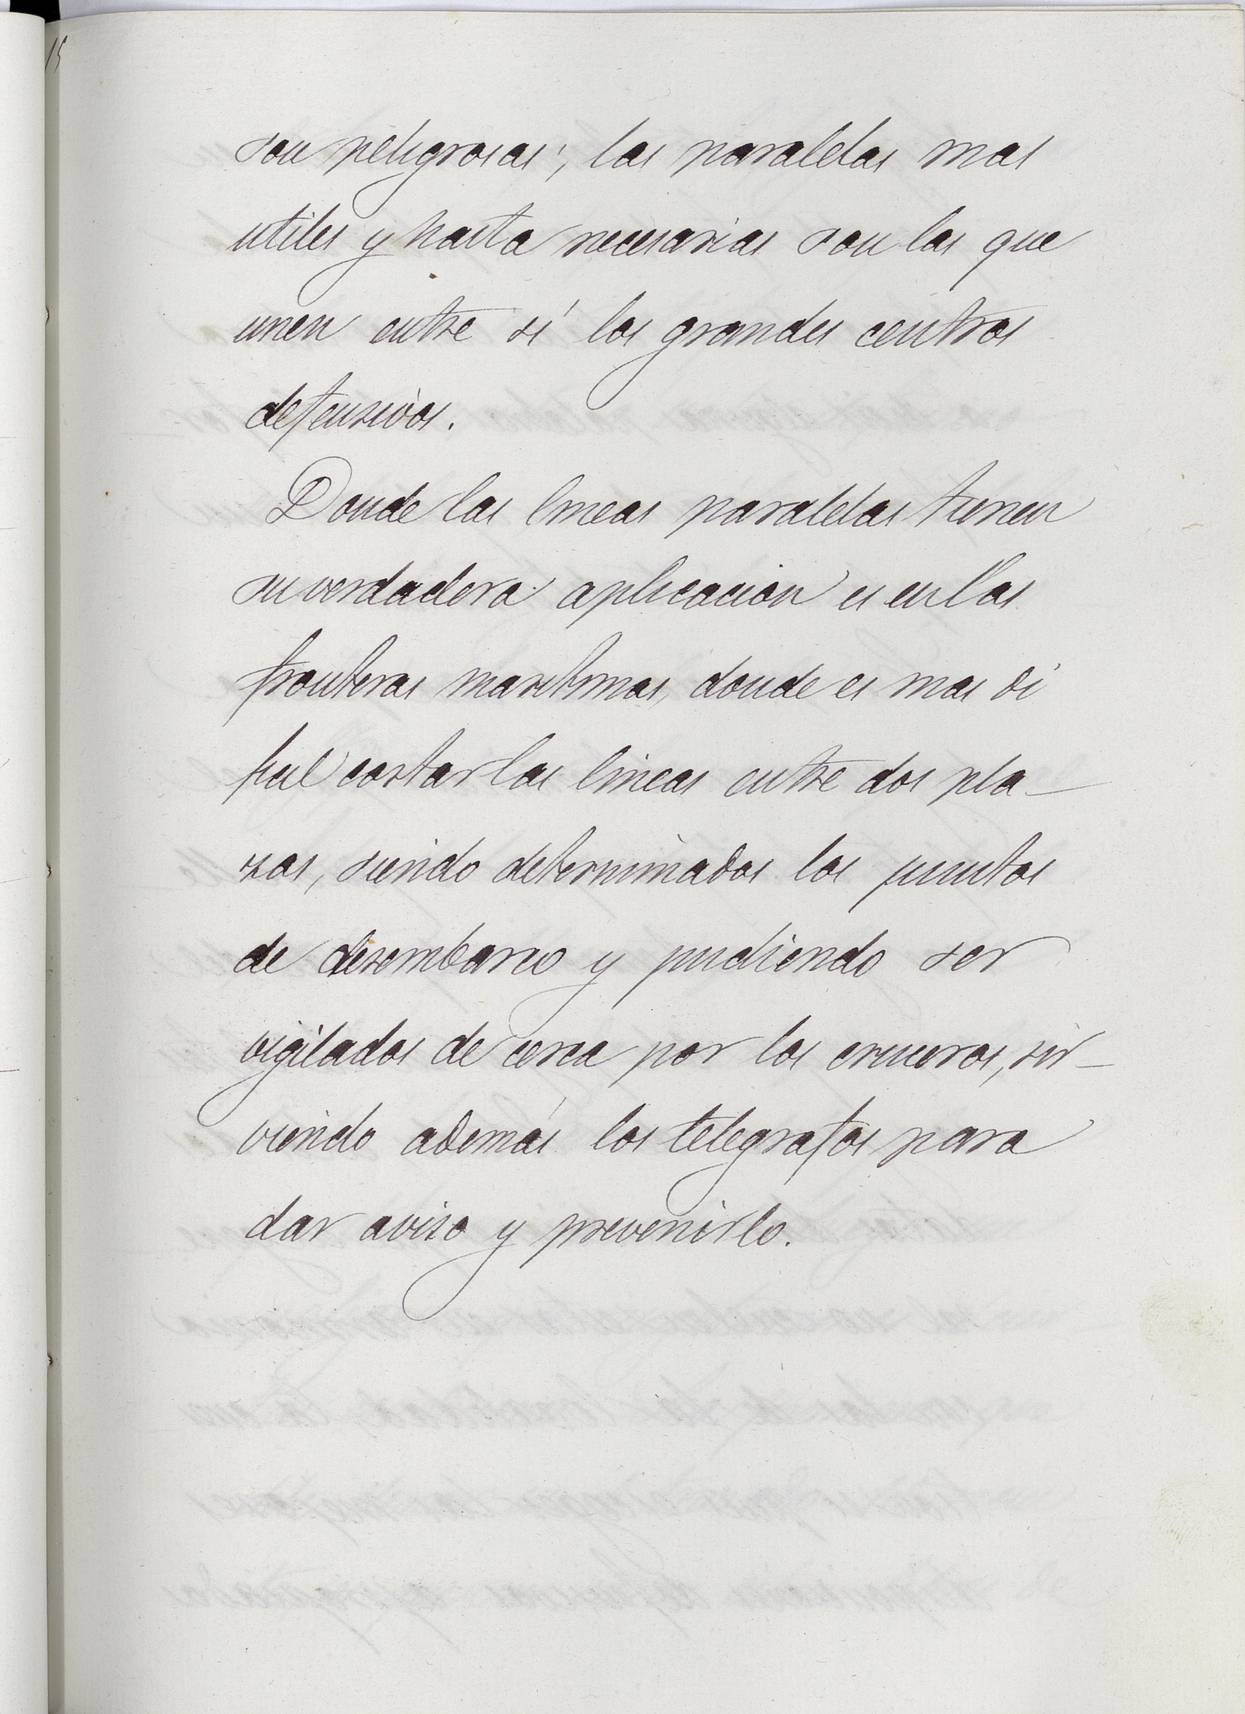 15
son peligrosas; las paralelas mas
utiles y hasta necesarias son las que
unen entre sí los grandes centros
defensivos.
Donde las lineas paralelas tienen
su verdadera aplicacion es en las
fronteras maritimas, donde es mas di
ficil cortar las lineas entre dos pla-
zas, siendo determinados los puntos
de desembarco y pudiendo ser
vigilados de cerca por los cruceros, sir-
viendo además los telegrafos para
dar aviso y prevenirlo.